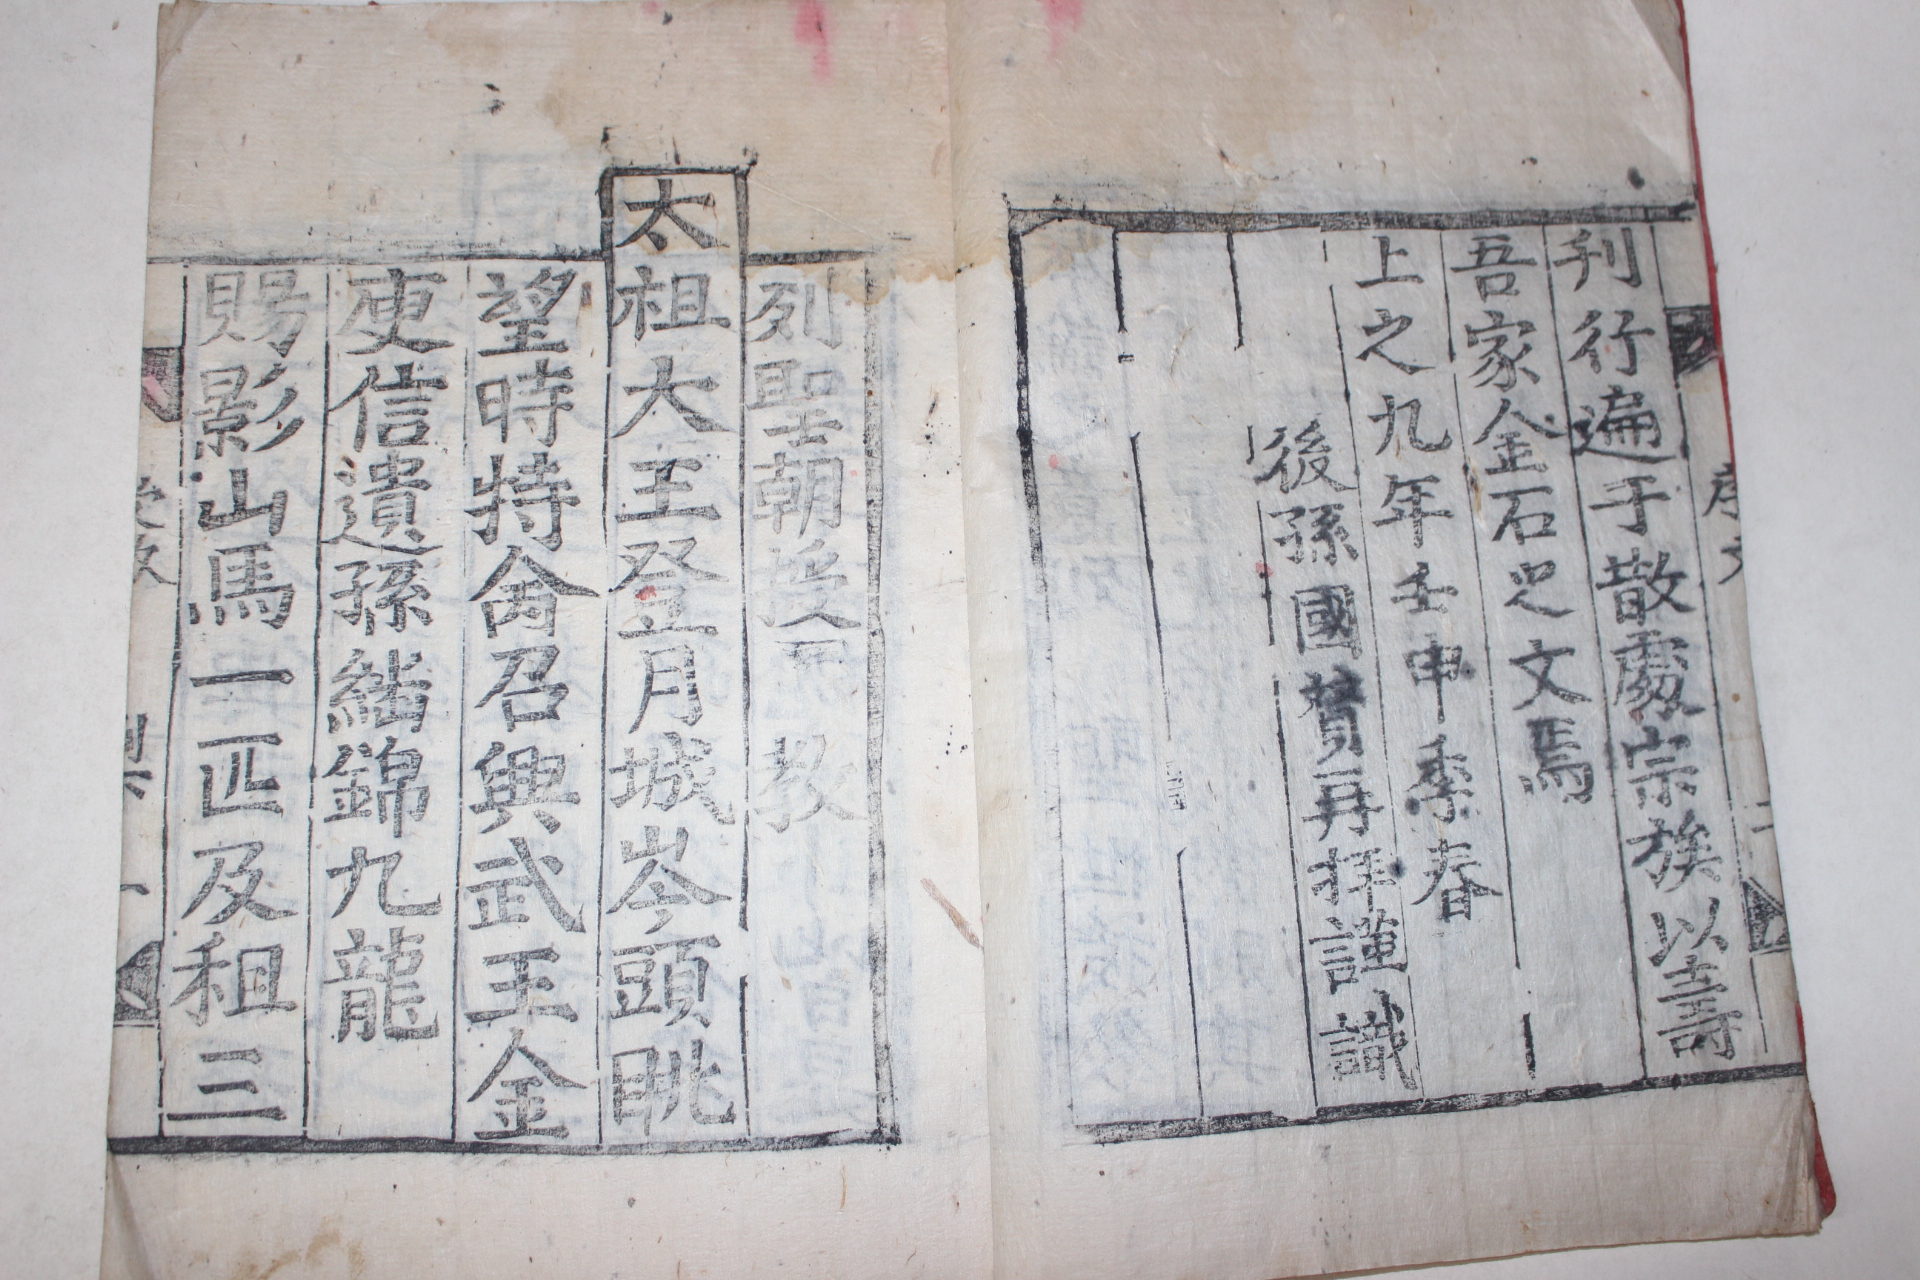 刊行遍于散處宗族以壽
吾家金石之文焉
上之九年壬申季春
後孫國賛再拜謹識
列聖朝授 教
太祖大王登月城岑頭眺
望時特命召興武王金
庾信遺孫緒錦九龍
賜影山馬一匹及租三